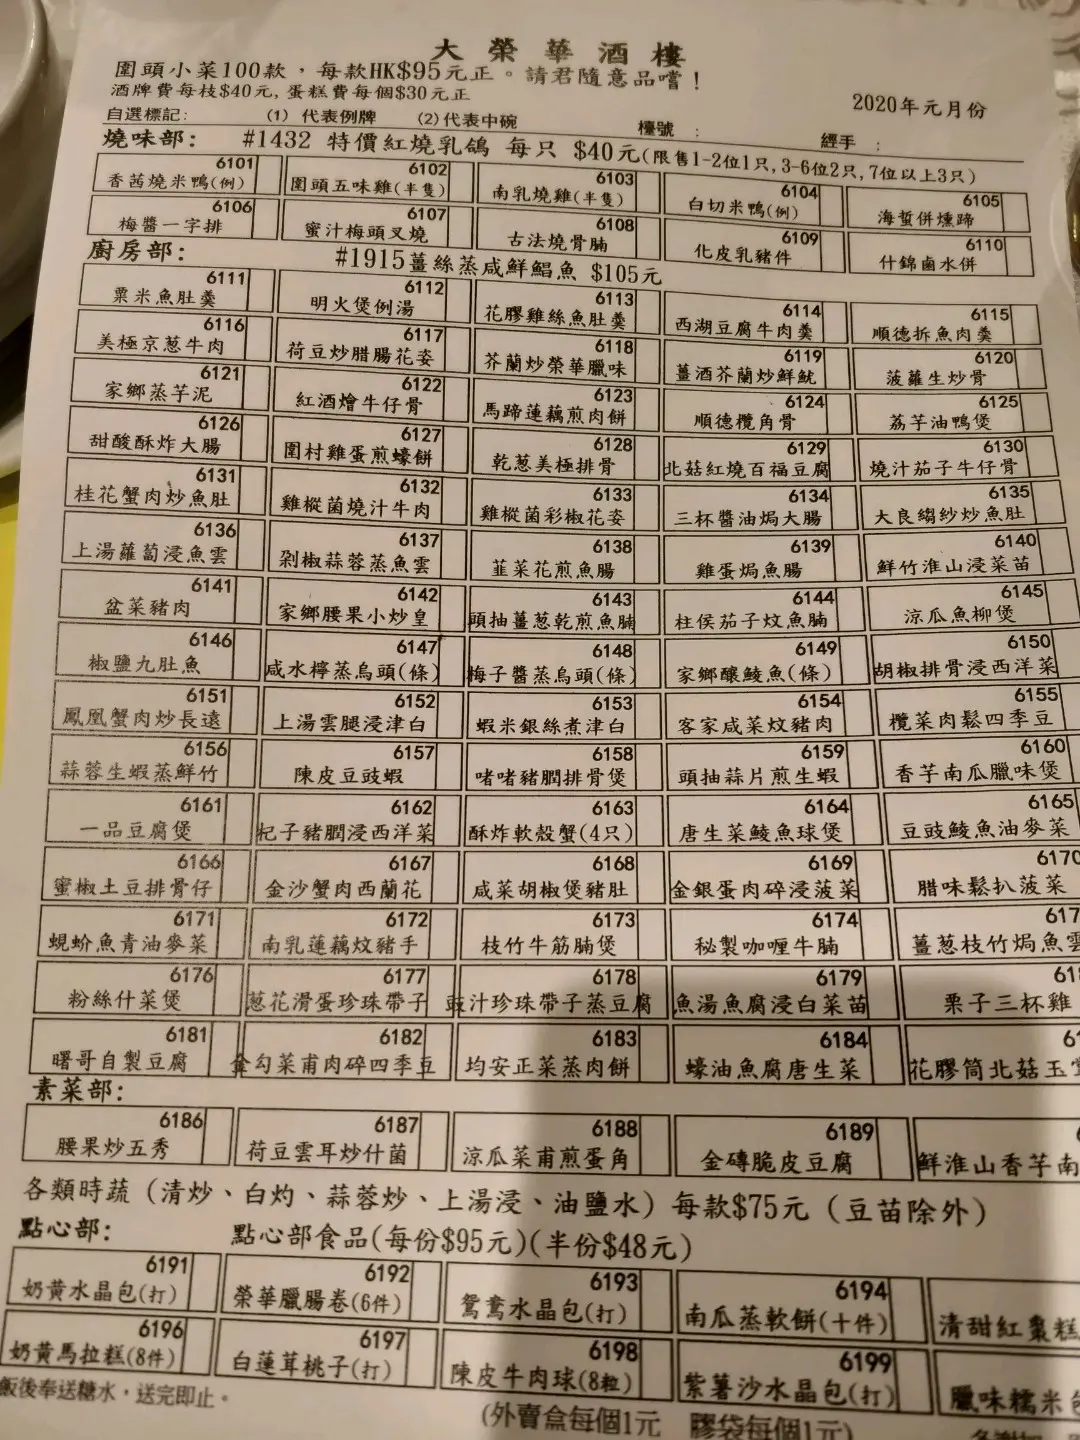 大榮華酒樓
圍頭小菜100款，每款HK$95元正。請君隨意品嚐！
酒牌費每枝$40元, 蛋糕費每個$30元正
2020年元月份
自選標記: (1) 代表例牌 (2)代表中碗 檯號 : 經手 :
燒味部: #1432 特價紅燒乳鴿 每只 $40元(限售1-2位1只,3-6位2只,7位以上3只)
6101 6102 6103 6104 6105
香茜燒米鴨(例) 圍頭五味雞(半隻) 南乳燒雞(半隻) 白切米鴨(例) 海蜇併燻蹄
6106 6107 6108 6109 6110
梅醬一字排 蜜汁梅頭叉燒 古法燒骨腩 化皮乳豬件 什錦鹵水併
廚房部: #1915薑絲蒸咸鮮鯧魚 $105元
6111 6112 6113 6114 6115
粟米魚肚羹 明火煲例湯 花膠雞絲魚肚羹 西湖豆腐牛肉羹 順德拆魚肉羹
6116 6117 6118 6119 6120
美極京葱牛肉 荷豆炒腊腸花姿 芥蘭炒榮華臘味 薑酒芥蘭炒鮮魷 菠蘿生炒骨
6121 6122 6123 6124 6125
家鄉蒸芋泥 紅酒燴牛仔骨 馬蹄蓮藕煎肉餅 順德欖角骨 荔芋油鴨煲
6126 6127 6128 6129 6130
甜酸酥炸大腸 圍村雞蛋煎蠔餅 乾葱美極排骨 北菇紅燒百福豆腐 燒汁茄子牛仔骨
6131 6132 6133 6134 6135
桂花蟹肉炒魚肚 雞樅菌燒汁牛肉 雞樅菌彩椒花姿 三杯醬油焗大腸 大良縐紗炒魚肚
6136 6137 6138 6139 6140
上湯蘿蔔浸魚雲 剁椒蒜蓉蒸魚雲 韮菜花煎魚腸 雞蛋焗魚腸 鮮竹淮山浸菜苗
6141 6142 6143 6144 6145
盆菜豬肉 家鄉腰果小炒皇 頭抽薑葱乾煎魚腩 柱侯茄子炆魚腩 涼瓜魚柳煲
6146 6147 6148 6149 6150
椒鹽九肚魚 咸水檸蒸烏頭(條) 梅子醬蒸烏頭(條) 家鄉釀鯪魚(條) 胡椒排骨浸西洋菜
6151 6152 6153 6154 6155
鳳凰蟹肉炒長遠 上湯雲腿浸津白 蝦米銀絲煮津白 客家咸菜炆豬肉 欖菜肉鬆四季豆
6156 6157 6158 6159 6160
蒜蓉生蝦蒸鮮竹 陳皮豆豉蝦 啫啫豬膶排骨煲 頭抽蒜片煎生蝦 香芋南瓜臘味煲
6161 6162 6163 6164 6165
一品豆腐煲 杞子豬膶浸西洋菜 酥炸軟殼蟹(4只) 唐生菜鯪魚球煲 豆豉鯪魚油麥菜
6166 6167 6168 6169 6170
蜜椒土豆排骨仔 金沙蟹肉西蘭花 咸菜胡椒煲豬肚 金銀蛋肉碎浸菠菜 腊味鬆扒菠菜
6171 6172 6173 6174 617
蜆蚧魚青油麥菜 南乳蓮藕炆豬手 枝竹牛筋腩煲 秘製咖喱牛腩 薑葱枝竹焗魚雲
6176 6177 6178 6179 61
粉絲什菜煲 葱花滑蛋珍珠帶子 豉汁珍珠帶子蒸豆腐 魚湯魚腐浸白菜苗 栗子三杯雞
6181 6182 6183 6184 6
曙哥自製豆腐 勾菜甫肉碎四季豆 均安正菜蒸肉餅 蠔油魚腐唐生菜 花膠筒北菇玉
素菜部:
6186 6187 6188 6189 6
腰果炒五秀 荷豆雲耳炒什菌 涼瓜菜甫煎蛋角 金磚脆皮豆腐 鮮淮山香芋南
各類時蔬（清炒、白灼、蒜蓉炒、上湯浸、油鹽水）每款$75元（豆苗除外）
點心部: 點心部食品(每份$95元)(半份$48元)
6191 6192 6193 6194
奶黃水晶包(打) 榮華臘腸卷(6件) 鴛鴦水晶包(打) 南瓜蒸軟餅(十件) 清甜紅棗糕
6196 6197 6198 6199
奶黃馬拉糕(8件) 白蓮茸桃子(打) 陳皮牛肉球(8粒) 紫薯沙水晶包(打) 臘味糯米
飯後奉送糖水，送完即止。
(外賣盒每個1元 膠袋每個1元)